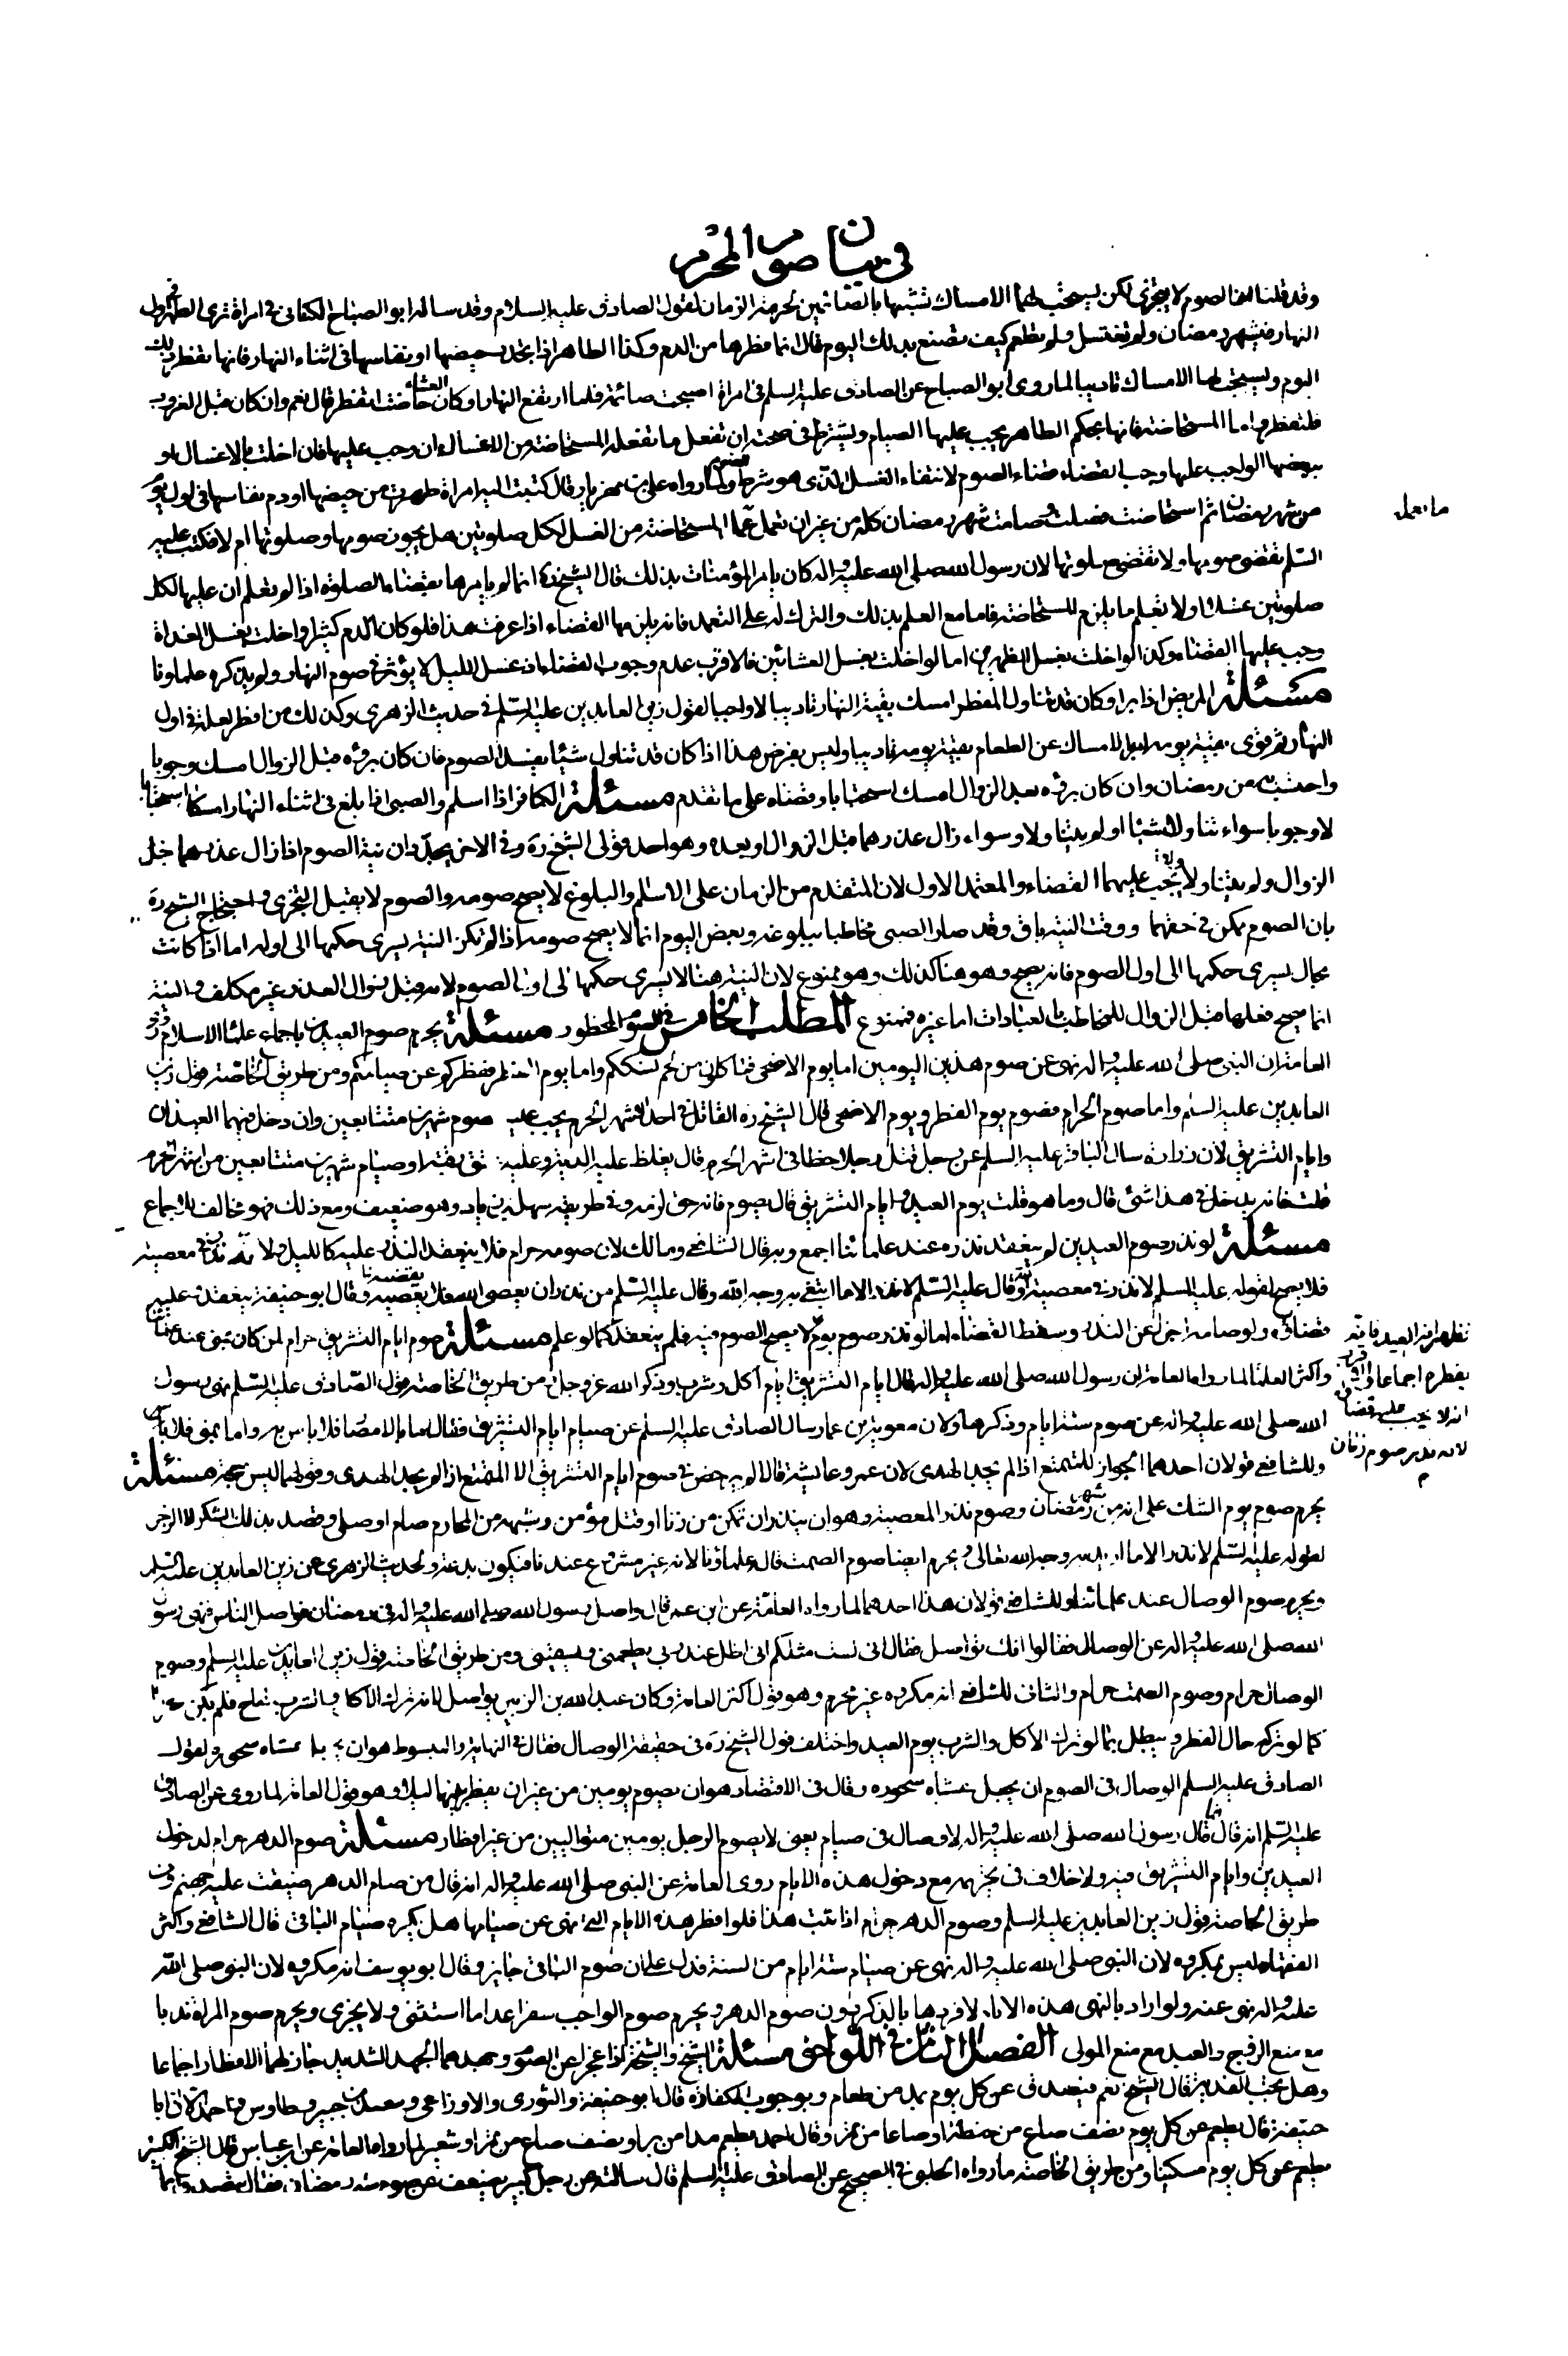 في بيان صوم المحرم
وقد قلنا ان الصوم لا يتجزى لكن يستحب لهما الامساك تشبها بالصائمين لحرمة الزمان لقول الصادق عليه السلام وقد ساله ابو الصباح الكناني في امراة ترى الطهر في اول
النهار في شهر رمضان ولم تغتسل ولم تطعم كيف تصنع بذلك اليوم قال انما فطرها من الدم وكذا الطاهر اذا تجدد حيضها او نفاسها في اثناء النهار فانها تفطر ذلك
اليوم ويستحب لها الامساك تاديبا لما روى ابو الصباح عن الصادق عليه السلم في امراة اصبحت صائمة فلما ارتفع النهار او كان العشاء حاضت اتفطر قال نعم وان كان قبل الغروب
فلتفطر واما المستحاضة فانها بحكم الطاهر يجب عليها الصيام ويشترط في صحته ان تفعل ما تفعله المستحاضة من الاغسال ان وجب عليها فان اخلت بالاغسال او
ببعضها الواجب عليها وجب القضاء قضاء الصوم لانتفاء الغسل الذي هو شرط ولما رواه علي بن مهزيار قال كتبت اليه امراة طهرت من حيضها او دم نفاسها في اول يوم
من شهر رمضان ثم استحاضت فصلت وصامت شهر رمضان كله من غير ان تعمل عما المستحاضة من الغسل لكل صلوتين هل يجوز صومها وصلوتها ام لا فكتب عليه
السلم تقضي صومها ولا تقضي صلوتها لان رسول الله صلى الله عليه واله كان يامر المؤمنات بذلك قال الشيخ ره انما لم يامرها بقضاء الصلوة اذا لم تعلم ان عليها لكل
صلوتين غسلا ولا تعلم ما يلزم المستحاضة فاما مع العلم بذلك والترك له على التعمد فانه يلزمها القضاء اذا عرفت هذا فلو كان الدم كثيرا واخلت بغسل الغداة
وجب عليها القضاء وكذا لو اخلت بغسل الظهرين اما لو اخلت بغسل العشائين فالاقرب عدم وجوب القضاء اذ غسل الليل لا يؤثر في صوم النهار ولم يذكره علماؤنا
مسئلة المريض اذا برا وكان قد تناول المفطر امسك بقية النهار تاديبا لا واجبا لقول زين العابدين عليه السلم في حديث الزهري وكذلك من افطر لعلة في اول
النهار ثم قوى بقية يومه امر بالامساك عن الطعام بقية يومه تاديبا وليس بفرض هذا اذا كان قد تناول شيئا يفسد الصوم فان كان برؤه قبل الزوال امسك وجوبا
واحتسب به من رمضان وان كان برؤه بعد الزوال امسك استحبابا وقضاه على ما تقدم مسئلة الكافر اذا اسلم والصبى اذا بلغ في اثناء النهار امسكا استحبابا
لا وجوبا سواء تناولا شيئا او لم يتناولا وسواء زال عذرهما قبل الزوال او بعده وهو احد قولي الشيخ ره وفي الاخر يجددان نية الصوم اذا زال عذرهما قبل
الزوال ولم يتناولا ولا يجب عليهما القضاء والمعتمد الاول لان المتقدم من الزمان على الاسلام والبلوغ لا يصح صومه والصوم لا يقبل التجزي واحتجاج الشيخ ره
بان الصوم ممكن في حقهما ووقت النية باق وقد صار الصبى مخاطبا ببلوغه وبعض اليوم انما لا يصح صومه اذا لم تكن النية يسرى حكمها الى اوله اما اذا كانت
بحال يسرى حكمها الى اول الصوم فانه يصح وهو هنا كذلك وهو ممنوع لان النية هنا لا يسرى حكمها الى اول الصوم لانه قبل زوال العذر غير مكلف والنية
انما صح فعلها قبل الزوال للمخاطب بالعبادات اما غيره فممنوع المطلب الخامس في الصوم المحظور مسئلة يحرم صوم العيدين باجماع علماء الاسلام روى
العامة ان النبي صلى الله عليه واله نهى عن صوم هذين اليومين اما يوم الاضحى فتاكلون من لحم نسككم واما يوم الفطر ففطركم عن صيامكم ومن طريق الخاصة قول زين
العابدين عليه السلم واما صوم الحرام فصوم يوم الفطر ويوم الاضحى قال الشيخ ره القاتل في احد اشهر الحرم يجب عليه صوم شهرين متتابعين وان دخل فيهما العيدان
وايام التشريق لان زرارة سال الباقر عليه السلم عن رجل قتل رجلا خطا في اشهر الحرم قال يغلظ عليه الدية وعليه عتق رقبة او صيام شهرين متتابعين من اشهر الحرم
قلت فانه يدخل في هذا شئ قال وما هو قلت يوم العيد وايام التشريق قال يصوم فانه حق لزمه وفي طريقه سهل بن زياد وهو ضعيف ومع ذلك فهو مخالف للاجماع
مسئلة لو نذر صوم العيدين لم ينعقد نذره عند علمائنا اجمع وبه قال الشافعي ومالك لان صومه حرام فلا ينعقد النذر عليه كالليل ولانه نذر في معصية
فلا يصح لقوله عليه السلم لا نذر في معصية الله وقال عليه السلم لا نذر الا ما ابتغي به وجه الله وقال عليه السلم من نذر ان يعصى الله فلا يعصيه وقال ابو حنيفة ينعقد وعليه
قضاؤه ولو صامه اجزا عن النذر وسقط القضاء اما لو نذر صوم يوم لا يصح الصوم فيه فلم ينعقد كما لو علم مسئلة صوم ايام التشريق حرام لمن كان بمنى عند علمائنا
واكثر العلماء لما رواه العامة ان رسول الله صلى الله عليه واله قال ايام التشريق ايام اكل وشرب وذكر الله عز وجل ومن طريق الخاصة قول الصادق عليه السلم نهى رسول
الله صلى الله عليه واله عن صوم ستة ايام وذكرها ولان معوية بن عمار سال الصادق عليه السلم عن صيام ايام التشريق فقال اما بالامصار فلا باس به واما بمنى فلا باس
وللشافعي قولان احدهما الجواز للمتمتع اذا لم يجد الهدى لان عمر وعايشة قالا لم يرخص في صوم ايام التشريق الا المتمتع اذا لم يجد الهدى وقولهما ليس حجة مسئلة
يحرم صوم يوم الشك على انه من شهر رمضان وصوم نذر المعصية وهو ان ينذر ان تمكن من زنا او قتل مؤمن وشبهه من المحارم صام او صلى وقصد بذلك الشكر لا الزجر
لقوله عليه السلم لا نذر الا ما اريد به وجه الله تعالى ويحرم ايضا صوم الصمت قاله علماؤنا لانه غير مشروع عندنا فيكون بدعة ولحديث الزهري عن زين العابدين عليه السلم
ويحرم صوم الوصال عند علمائنا وللشافعي قولان هذا احدهما لما رواه العامة عن ابن عمر قال واصل رسول الله صلى الله عليه واله في رمضان فواصل الناس فنهى رسول
الله صلى الله عليه واله عن الوصال فقالوا انك تواصل فقال اني لست مثلكم اني اظل عند ربي يطعمني ويسقيني ومن طريق الخاصة قول زين العابدين عليه السلم وصوم
الوصال حرام وصوم الصمت حرام والثاني للشافعي انه مكروه غير محرم وهو قول اكثر العامة وكان عبد الله بن الزبير يواصل لانه ترك الاكل والشرب المباح فلم يكن محرما
كما لو تركه حال الفطر ويبطل بما لو ترك الاكل والشرب يوم العيد واختلف قول الشيخ ره في حقيقة الوصال فقال في النهاية والمبسوط هو ان يجعل عشاه سحوره لقول
الصادق عليه السلم الوصال في الصوم ان يجعل عشاه سحوره وقال في الاقتصاد هو ان يصوم يومين من غير ان يفطر بينهما ليلا وهو قول العامة لما روى عن الصادق
عليه السلم انه قال انما قال رسول الله صلى الله عليه واله لا وصال في صيام يعني لا يصوم الرجل يومين متواليين من غير افطار مسئلة صوم الدهر حرام لدخول
العيدين وايام التشريق فيه ولا خلاف في تحريمه مع دخول هذه الايام روى العامة عن النبي صلى الله عليه واله انه قال من صام الدهر ضيقت عليه جهنم ومن
طريق الخاصة قول زين العابدين عليه السلم وصوم الدهر حرام اذا ثبت هذا فلو افطر هذه الايام التي نهى عن صيامها هل يكره صيام الباقي قال الشافعي واكثر
الفقهاء ليس بمكروه لان النبي صلى الله عليه واله نهى عن صيام ستة ايام من السنة فدل على ان صوم الباقي جايز وقال ابو يوسف انه مكروه لان النبي صلى الله
عليه واله نهى عنه ولو اراد بالنهى هذه الايام لافردها بالذكر دون صوم الدهر ويحرم صوم الواجب سفرا عدا ما استثنى ولا يجزى ويحرم صوم المراة ندبا
مع منع الزوج والعبد مع منع المولى الفصل الثالث في اللواحق مسئلة الشيخ والشيخة اذا عجزا عن الصوم وجهدهما الجهد الشديد جاز لهما الافطار اجماعا
وهل يجب الفدية قال الشيخ نعم فيتصدق عن كل يوم بمد من طعام وبوجوب الكفارة قال ابو حنيفة والثوري والاوزاعي وسعيد بن جبير وطاوس واحمد الا ان ابا
حنيفة قال يطعم عن كل يوم نصف صاع من حنطة او صاعا من تمر وقال احمد يطعم مدا من بر او نصف صاع من تمر او شعير لما رواه العامة عن ابن عباس قال الشيخ الكبير
يطعم عن كل يوم مسكينا ومن طريق الخاصة ما رواه الحلبي في الصحيح عن الصادق عليه السلم قال سالته عن رجل كبير يضعف عن صوم شهر رمضان فقال يتصدق بما
ما تعمل
فظهر انه العيد فانه
يفطره اجماعا والاقرب
انه لا يجب عليه قضاؤه
لانه نذر صوم زمان